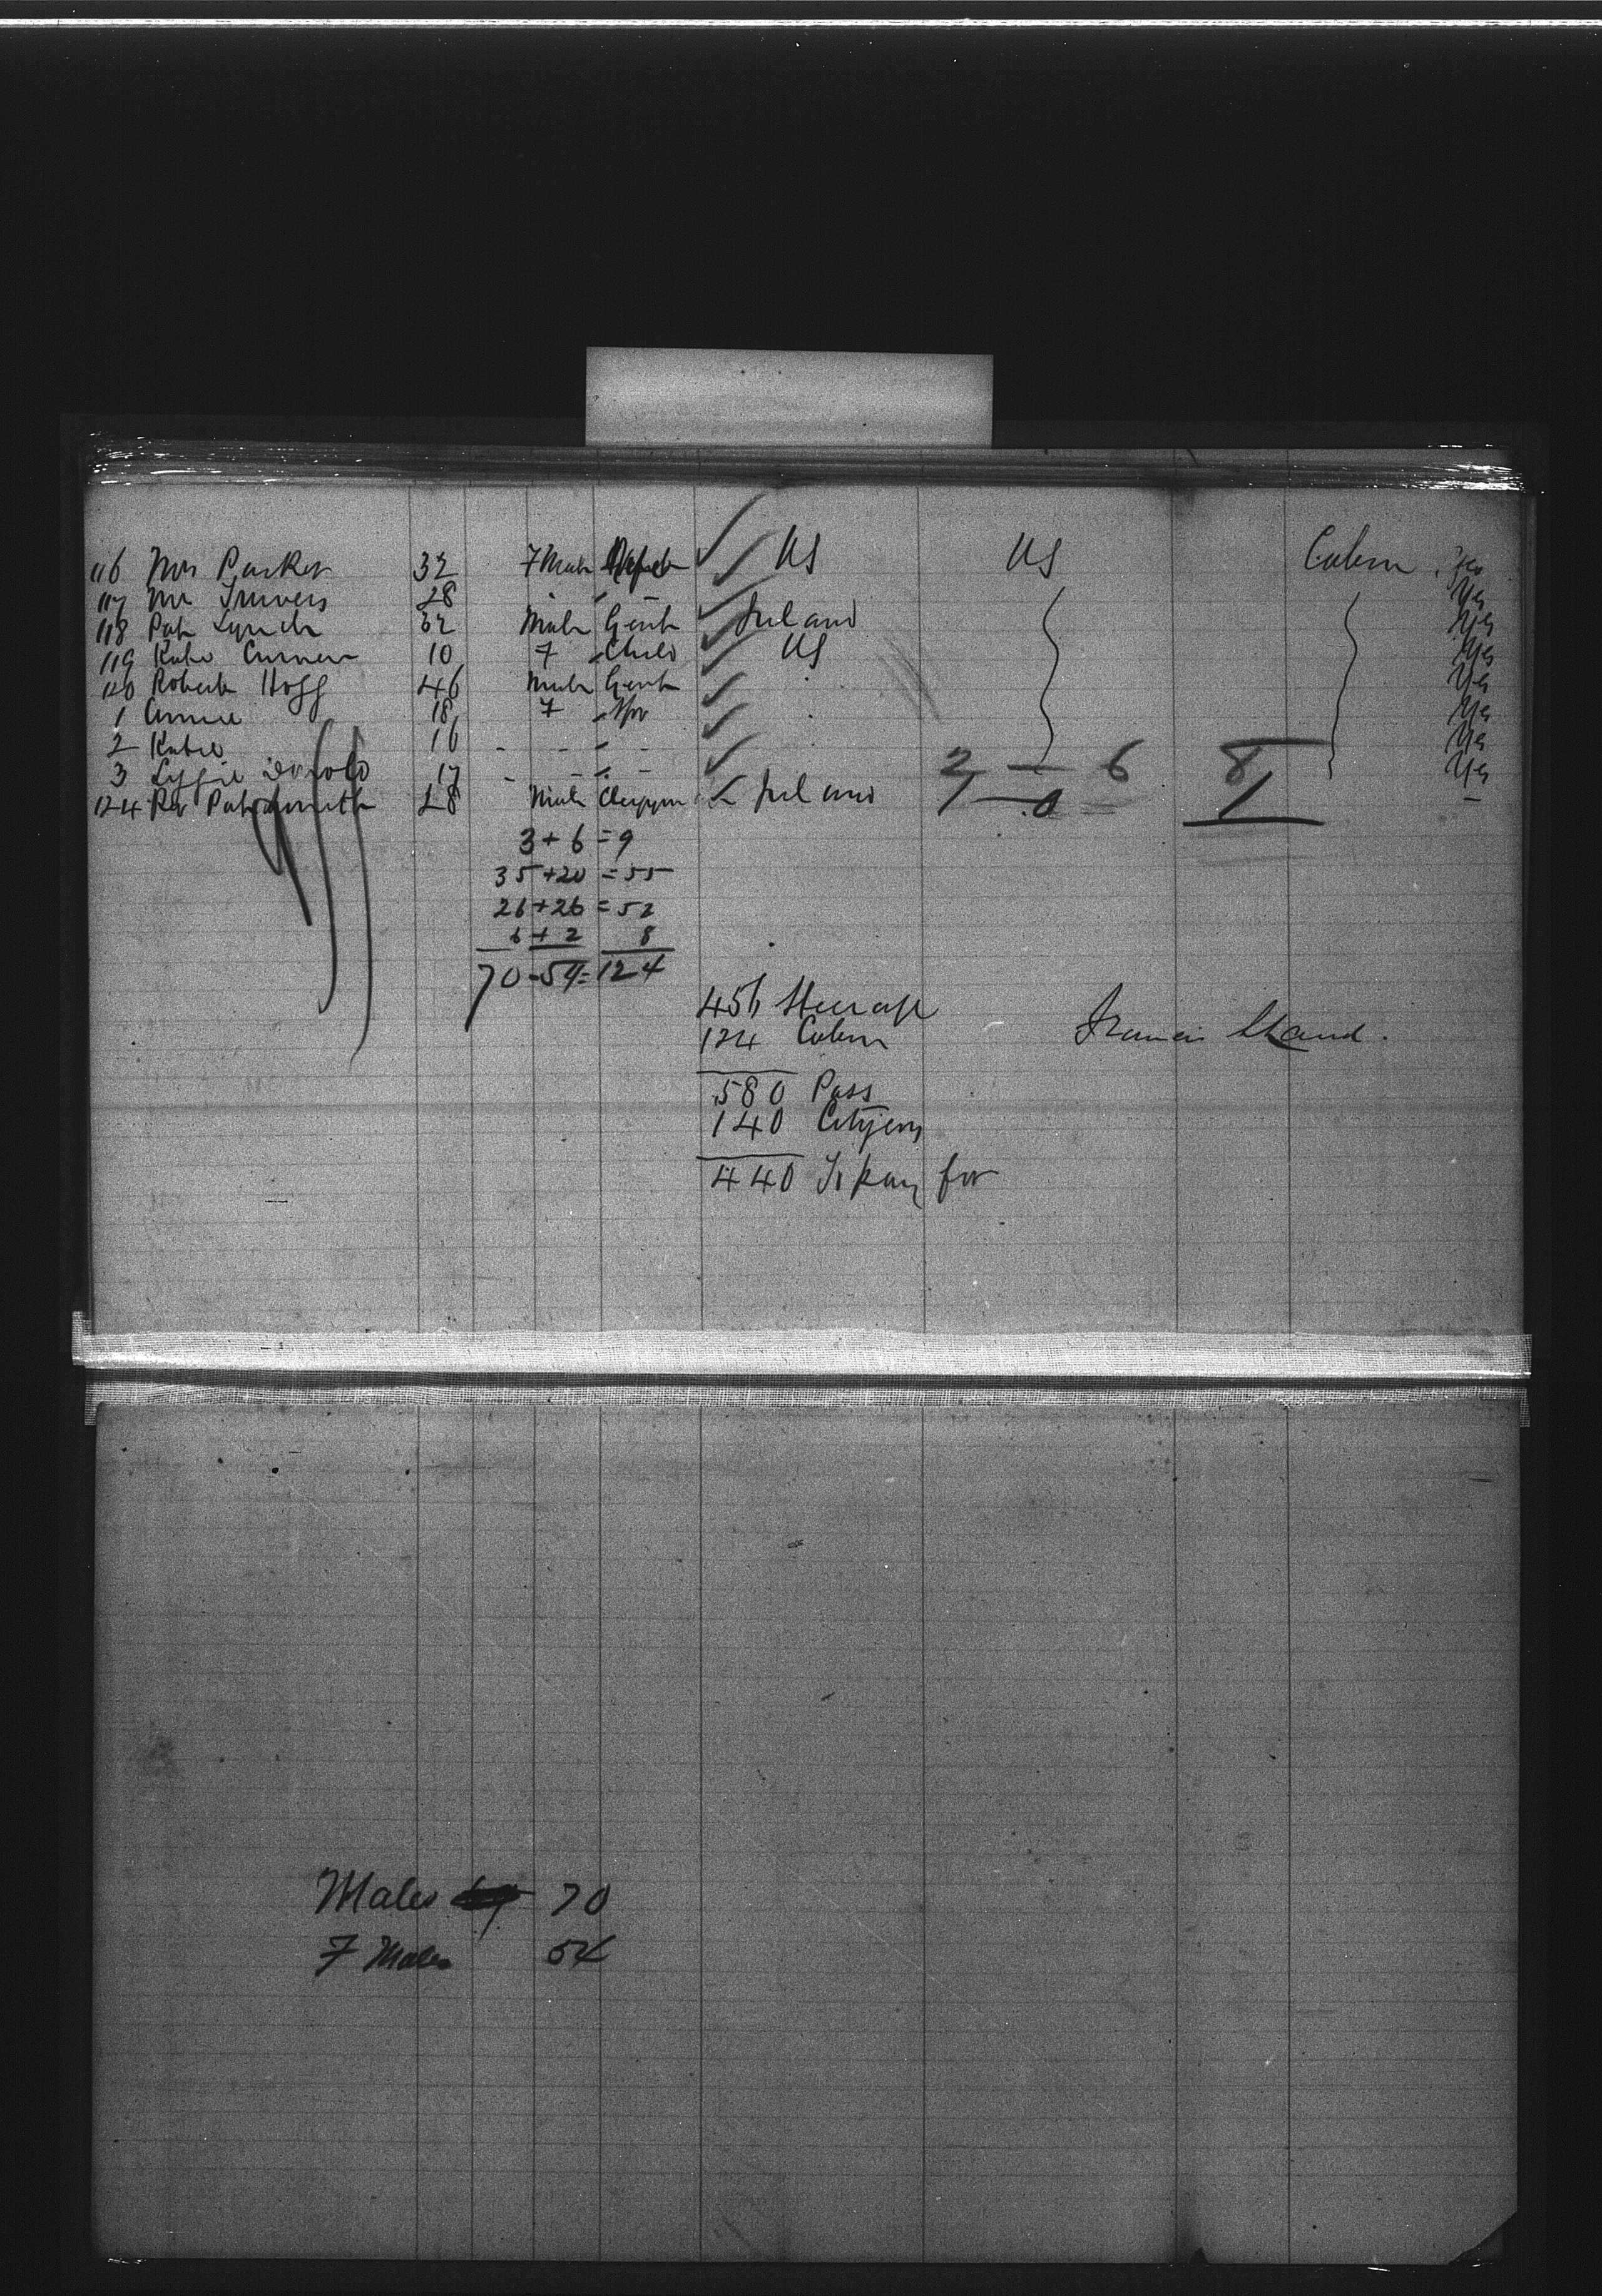 116 Mrs Parker 32 F Male US US Cabin Yes
117 Mr Travers 28 " " " Yes
118 Pat Lynch 32 Male Gent Ireland Yes
119 Kate Curner 10 F Child US Yes
120 Robert Hogg 46 Male Gent " Yes
1 Annie 18 F Spr " Yes
2 Katie 16 - - - - Yes
3 Lizzie 17 - - - - Yes
124 Rev Pat Smith 28 Male Clergyman Ireland -
2 - 6 8
1 - 0 = 1
3 + 6 = 9
35 + 20 = 55
26 + 26 = 52
6 + 2 8
70 - 54 = 124
456 Steerage
124 Cabin
Francis Stand.
580 Pass
140 Citizens
440 To pay for
Males 70
F Males 54